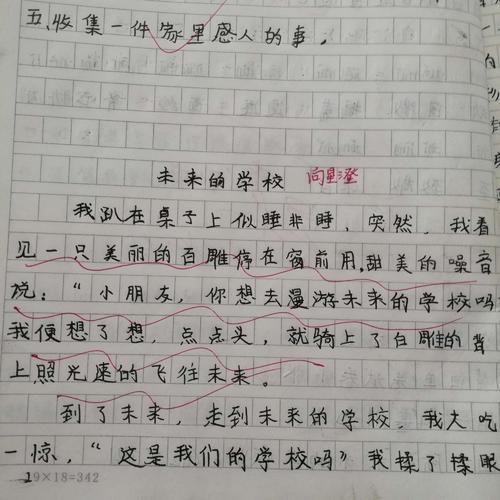 五、收集一件家里感人的事。
未来的学校 向星澄
我趴在桌子上似睡非睡，突然，我看
见一只美丽的百雕停在窗前用，甜美的噪音
说：“小朋友，你想去漫游未来的学校吗
我便想了想，点点头，就骑上了白雕的背
上照光速的飞往未来。
到了未来，走到未来的学校，我大吃
一惊，“这是我们的学校吗”我揉了揉眼
19×18=342